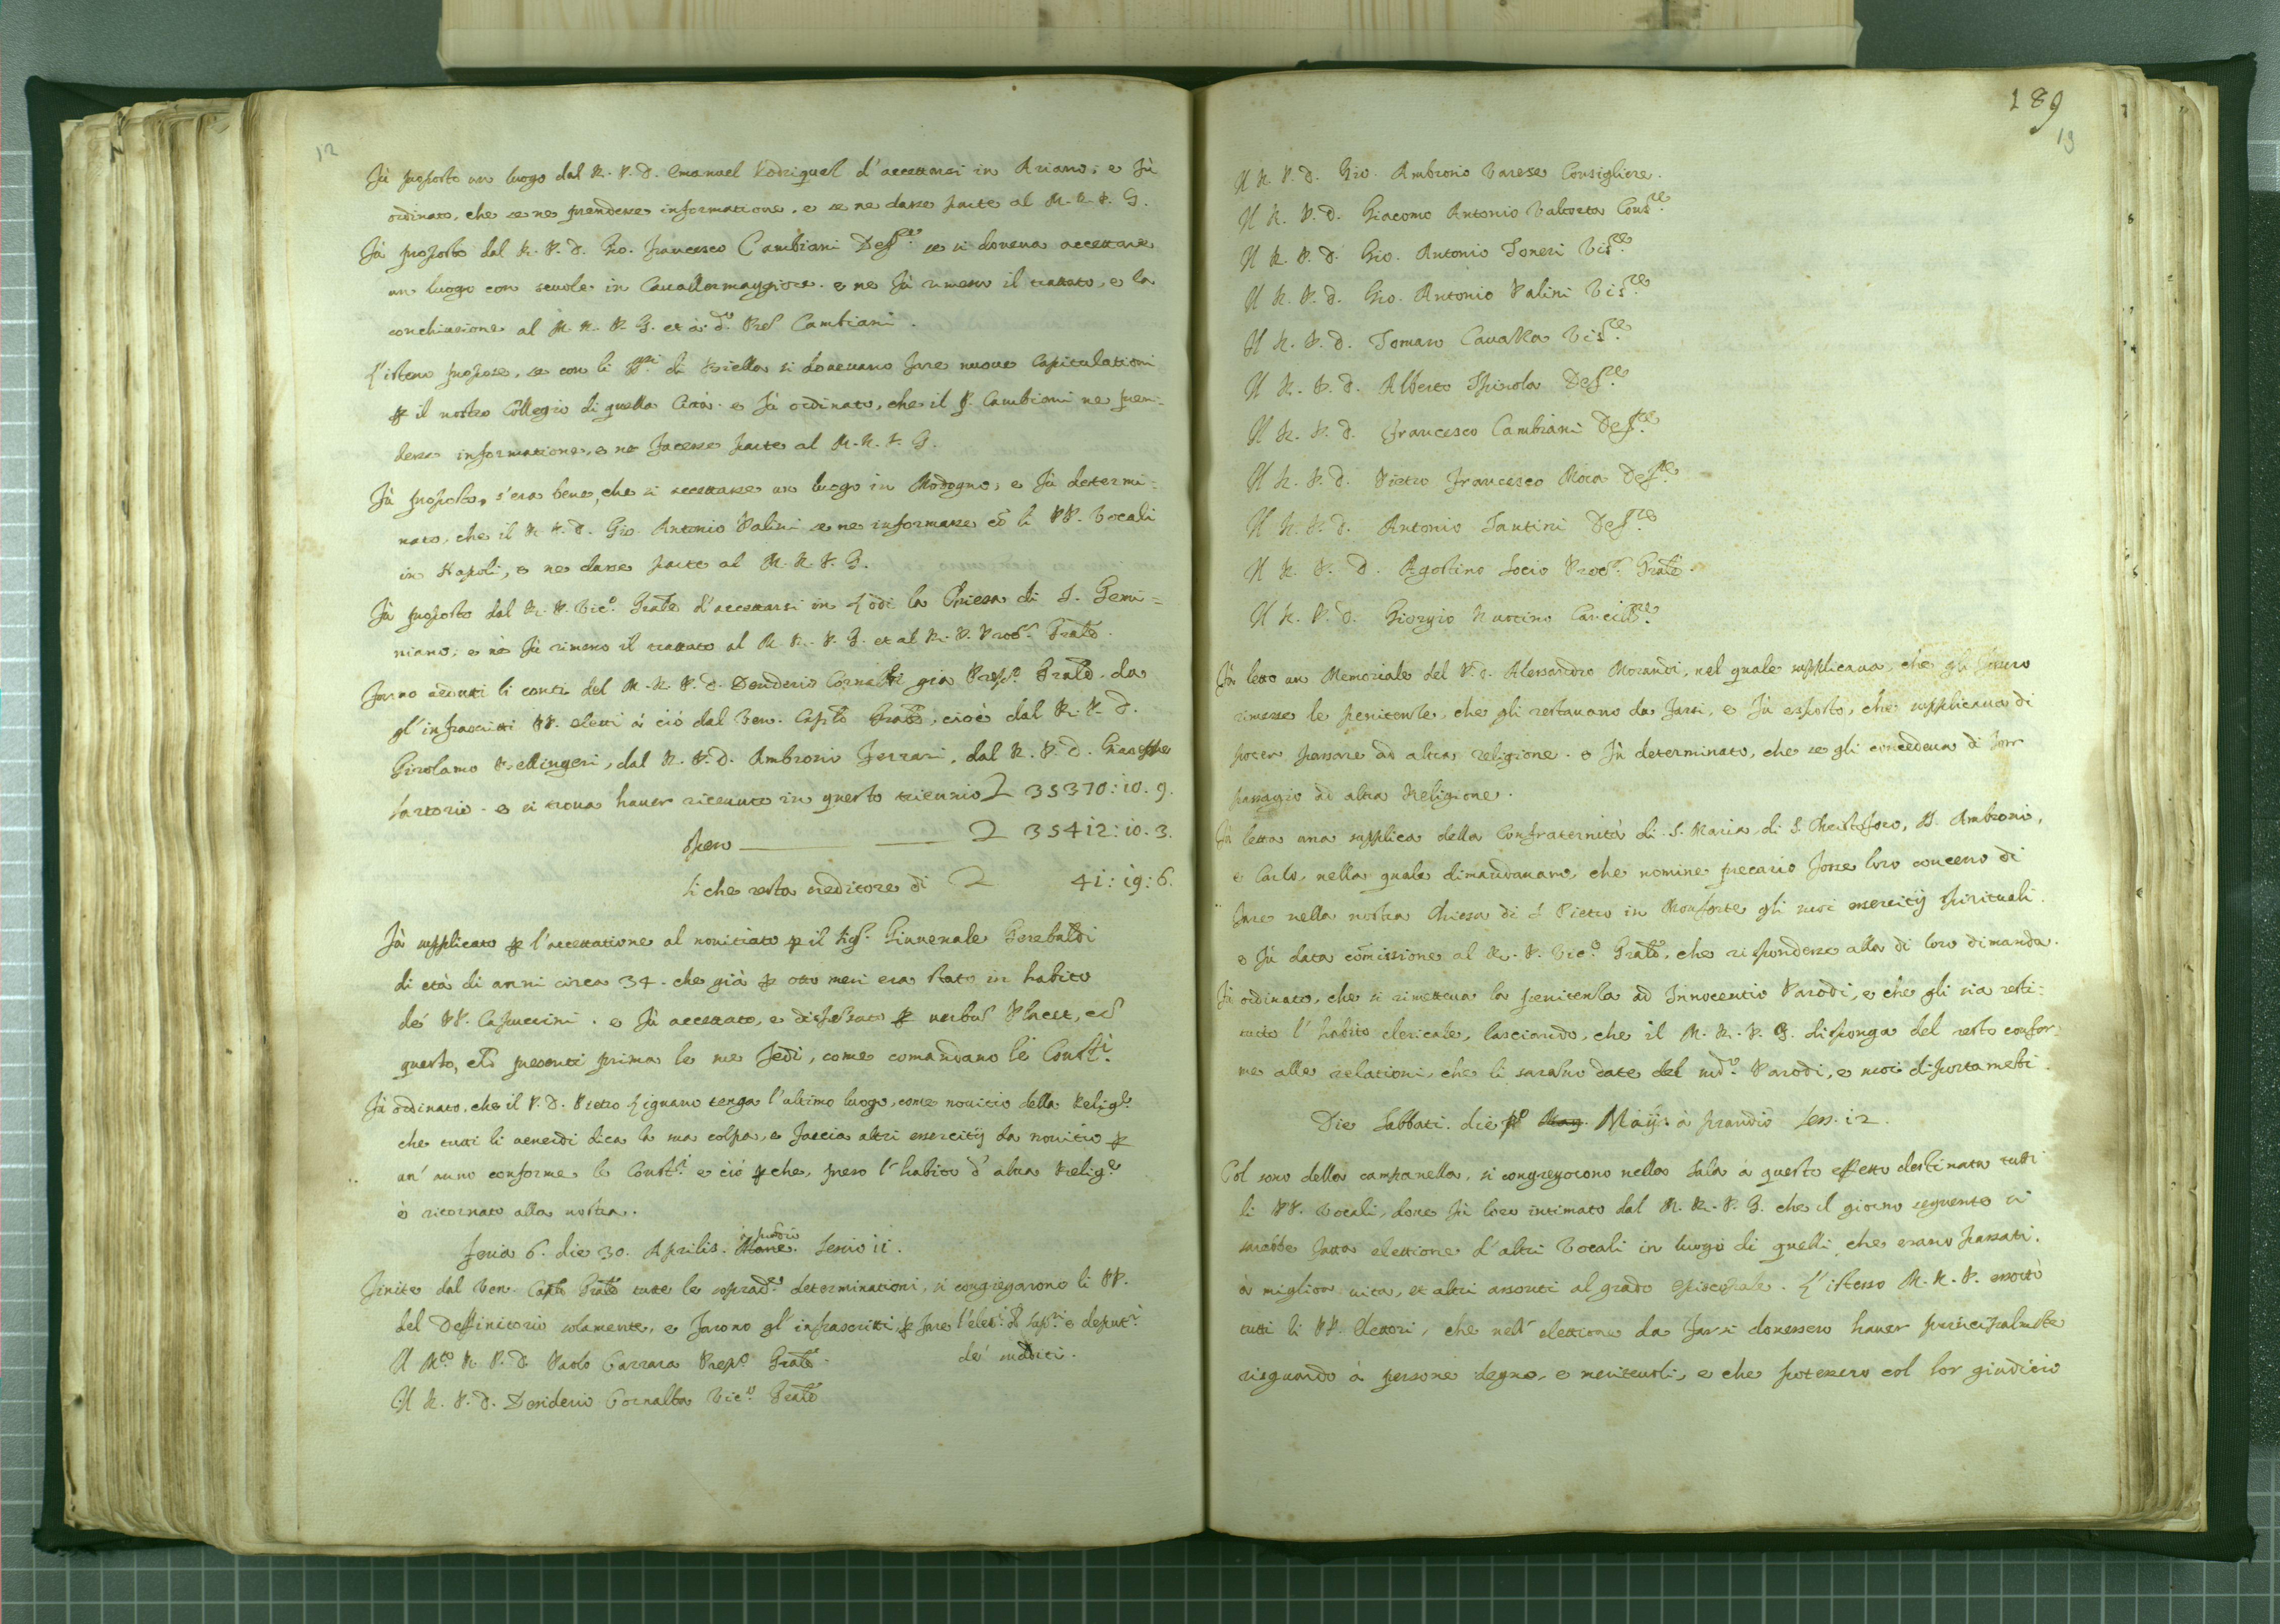 12
Fù proposto un luogo dal R. P. D. Emanuel Rodriguel d'accettarsi in Ariano; e fù
ordinato, che se ne prendesse informatione, e se ne dasse parte al M. R. P. G.
Fù proposto dal R. P. D. Gio. Francesco Cambiani Def.re se si doveva accettare
un luogo con scuole in Cavallermaggiore. e ne fù rimesso il trattato, e la
conchiusione al M. R. P. G. et à d.o Pre Cambiani.
L'istesso propose, se con li SS.ri di Biella si dovevano fare nuove Capitulationi
ꝑ il nostro Collegio di quella Città. e fù ordinato, che il P. Cambiani ne pren=
desse informatione, e ne facesse parte al M. R. P. G.
Fù proposto, s'era bene, che si accettasse un luogo in Modogno; e fù determi=
nato, che il R. P. D. Gio. Antonio Palini se ne informasse cō li PP. Vocali
in Napoli, e ne dasse parte al M. R. P. G.
Fù proposto dal R. P. Vic.o Grale d'accettarsi in Lodi la Chiesa di S. Gemi=
niano; e ne fù rimesso il trattato al M. R. P. G. et al R. P. Proc.re Grale.
Furno veduti li conti del M. R. P. D. Desiderio Cornalba già Prep.o Grale, da
gl'infrascritti PP. eletti à ciò dal Ven. Caplo Grale, cioè dal R. P. D.
Girolamo Bellingeri, dal R. P. D. Ambrosio Ferrari, dal R. P. D. Gioseffe
Sartorio. e si trova haver ricevuto in questo triennio 35370:10.9.
Speso 35412:10.3.
Si che resta creditore di 41:19:6.
Fù supplicato ꝑ l'accettatione al novitiato ꝑ il Sig.r Giuvenale Gerebaldi
di età di anni circa 34. che già ꝑ otto mesi era stato in habito
de' PP. Capuccini. e fù accettato, e dispensato ꝑ verbum Placet, cō
questo, che presenti prima le sue fedi, come comandano le Const.i
Fù ordinato, che il P. D. Pietro Lignano tenga l'ultimo luogo, come novitio della Relig.e
che tutti li venerdi dica la sua colpa, e faccia altri essercitij da novitio ꝑ
un' anno conforme le Const.i e ciò ꝑche, preso l'habito d'altra Relig.e
è ritornato alla nostra.
à prandio
Feria 6. die 30. Aprilis. Mane. Sessio 11.
Finite dal Ven. Caplo Grale tutte le soprad.e determinationi, si congregarono li PP.
del Deffinitorio solamente, e furono gl'infrascritti, ꝑ fare l'elet.e de' Sup.ri e deput.i
Il M.to R. P. D. Paolo Carrara Prep.o Grale.
de'
Il R. P. D. Desiderio Cornalba Vic.o Grale
189
13
Il R. P. D. Gio. Ambrosio Varese Consigliere.
Il R. P. D. Giacomo Antonio Valtorta Cons.re
Il R. P. D. Gio. Antonio Soneri Vis.re
Il R. P. D. Gio. Antonio Palini Vis.re
Il R. P. D. Tomaso Cavalla Vis.re
Il R. P. D. Alberto Spinola Def.re
Il R. P. D. Francesco Cambiani Def.re
Il R. P. D. Pietro Francesco Moca Def.re
Il R. P. D. Antonio Santini Def.re
Il R. P. D. Agostino Socio Proc.re Grale.
Il R. P. D. Giorgio Nuotino Cancell.re
Fù letto un Memoriale del P. D. Alessandro Morandi, nel quale supplicava, che gli fussero
rimesse le penitenze, che gli restavano da farsi, e fù esposto, che supplicava di
poter passare ad altra religione. e fù determinato, che se gli concedeva di
passagio ad altra Religione.
Fù letta una supplica della Confraternità di S. Maria, di S. Christoforo, SS. Ambrosio,
e Carlo, nella quale dimandavano, che nomine precario fosse loro concesso di
fare nella nostra Chiesa di S. Pietro in Monforte gli suoi essercitij spirituali.
e fù data cōmissione al R. P. Vic.o Grale, che rispondesse alla di loro dimanda.
Fù ordinato, che si rimetteva la penitenza ad Innocentio Parodi, e che gli sia resti=
tuito l'habito clericale, lasciando, che il M. R. P. G. disponga del resto confor=
me alle relationi, che li saranno date del sud.o Parodi, e suoi diportamenti.
Die Sabbati. die p.o May. Maij à prandio Sess. 12.
Col sono della campanella, si congregorono nella Sala à questo effetto destinata tutti
li PP. Vocali, dove fù loro intimato dal M. R. P. G. che il giorno seguente si
sarebbe fatta elettione d'altri Vocali in luogo di quelli che erano passati
à miglior vita, et altri assonti al grado Episcopale. L'istesso M. R. P. essortò
tutti li PP. Elettori, che nell'elettione da farsi dovessero haver principalmēte
risguardo à persone degne, e meritevoli, e che potessero col lor giudicio